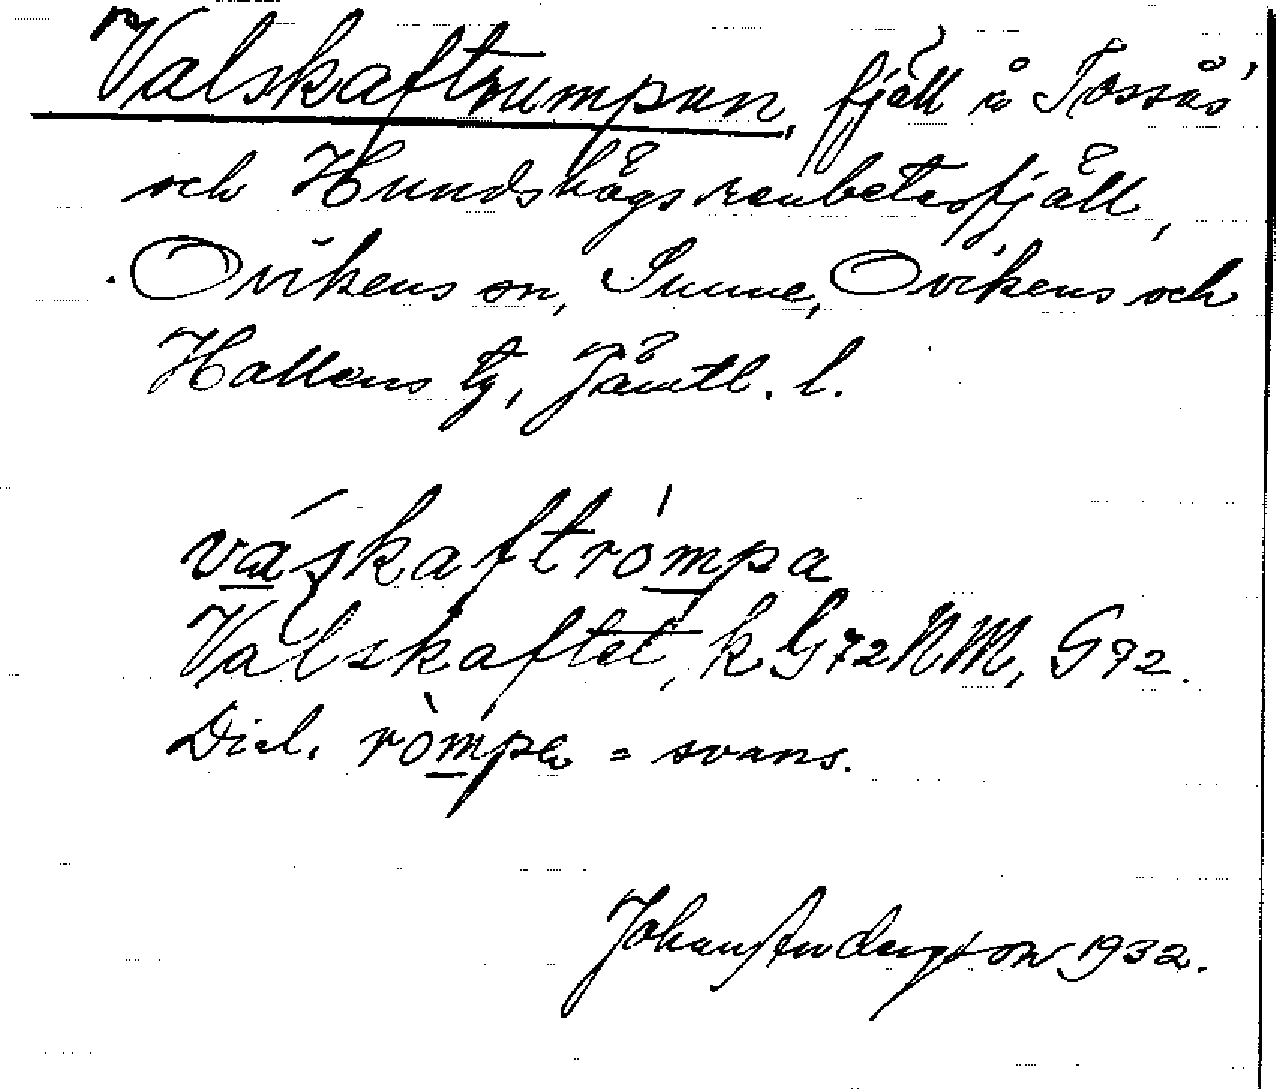 Valskaftrumpan, fjäll å Tossås
och Hundshögs renbetesfjäll,
Ovikens sn, Sunne, Ovikens och
Hallens tg, Jämtl. l.
váskaftrómpa
Valskaftet, k G72NM, G72.
Dial. ròmpa = svans.
Johan Anderson 1932.